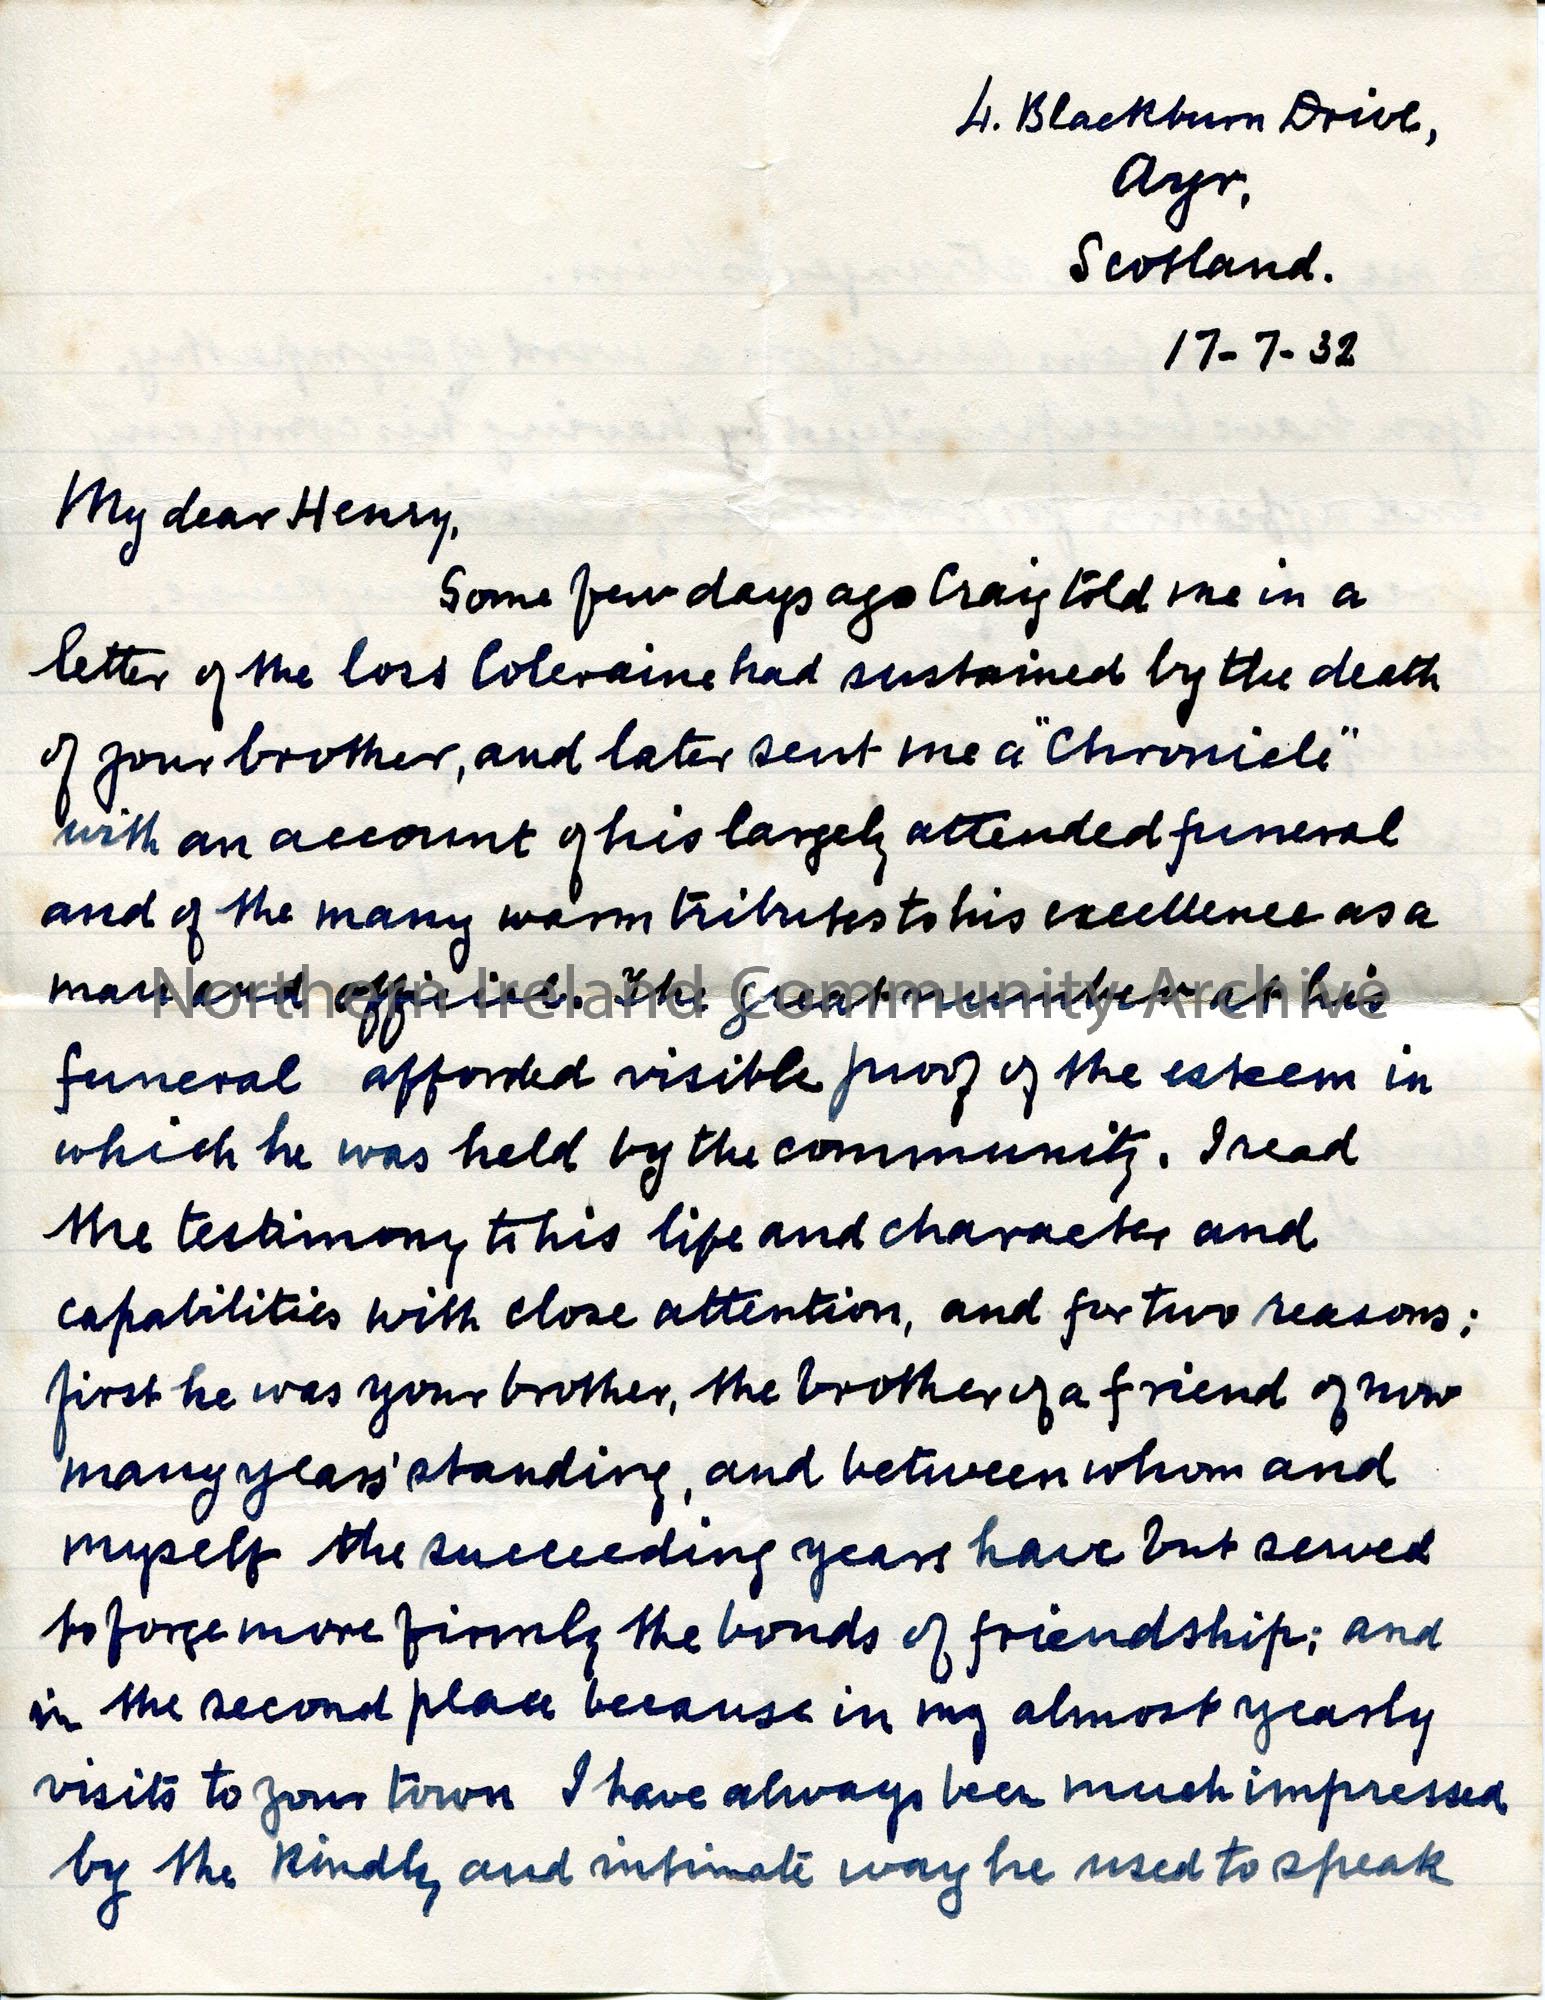 4. Blackburn Drive,
Ayr,
Scotland.
17-7-32
My dear Henry,
Some few days ago Craig told me in a
letter of the loss Coleraine had sustained by the death
of your brother, and later sent me a "Chronicle"
with an account of his largely attended funeral
and of the many warm tributes to his excellence as a
man and official. The great number at his
Northern Ireland Community Archive
funeral afforded visible proof of the esteem in
which he was held by the community. I read
the testimony to his life and character and
capabilities with close attention, and for two reasons;
first he was your brother, the brother of a friend of now
many years' standing, and between whom and
myself the succeeding years have but served
to forge more firmly the bonds of friendship; and
in the second place because in my almost yearly
visits to your town I have always been much impressed
by the kindly and intimate way he used to speak